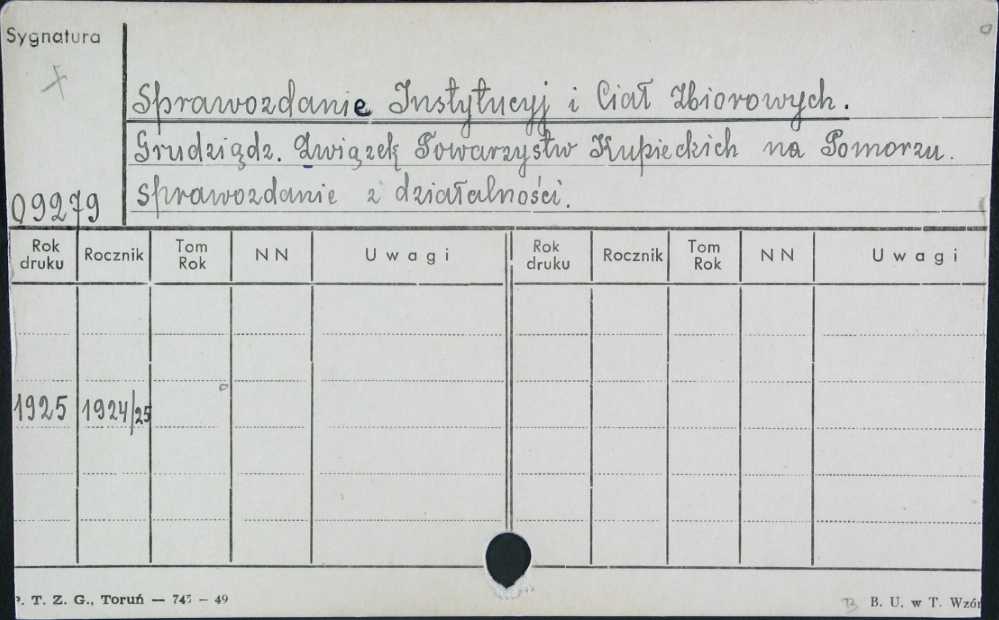 Sygnatura
X
Sprawozdanie Instytucyj i Ciał Zbiorowych.
Grudziądz. Związek Towarzystw Kupieckich na Pomorzu.
Sprawozdanie z działalności.
09279
Rok druku Rocznik Tom Rok NN Uwagi Rok druku Rocznik Tom Rok NN Uwagi
1925 1924/25
T. Z. G., Toruń — 747 — 49
B. U. w T. Wzór